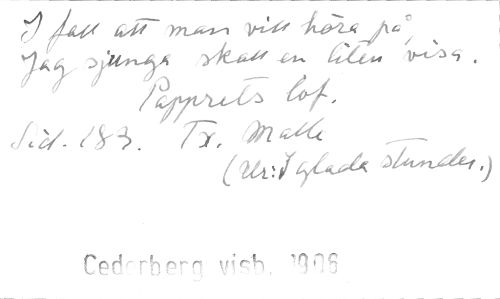 I fall att man vill höra på,
Jag sjunga skall en liten visa.
Papprets lof.
Sid. 183. Tx. Malle
(Ur: I glada stunder.)
Cederberg visb. 1906